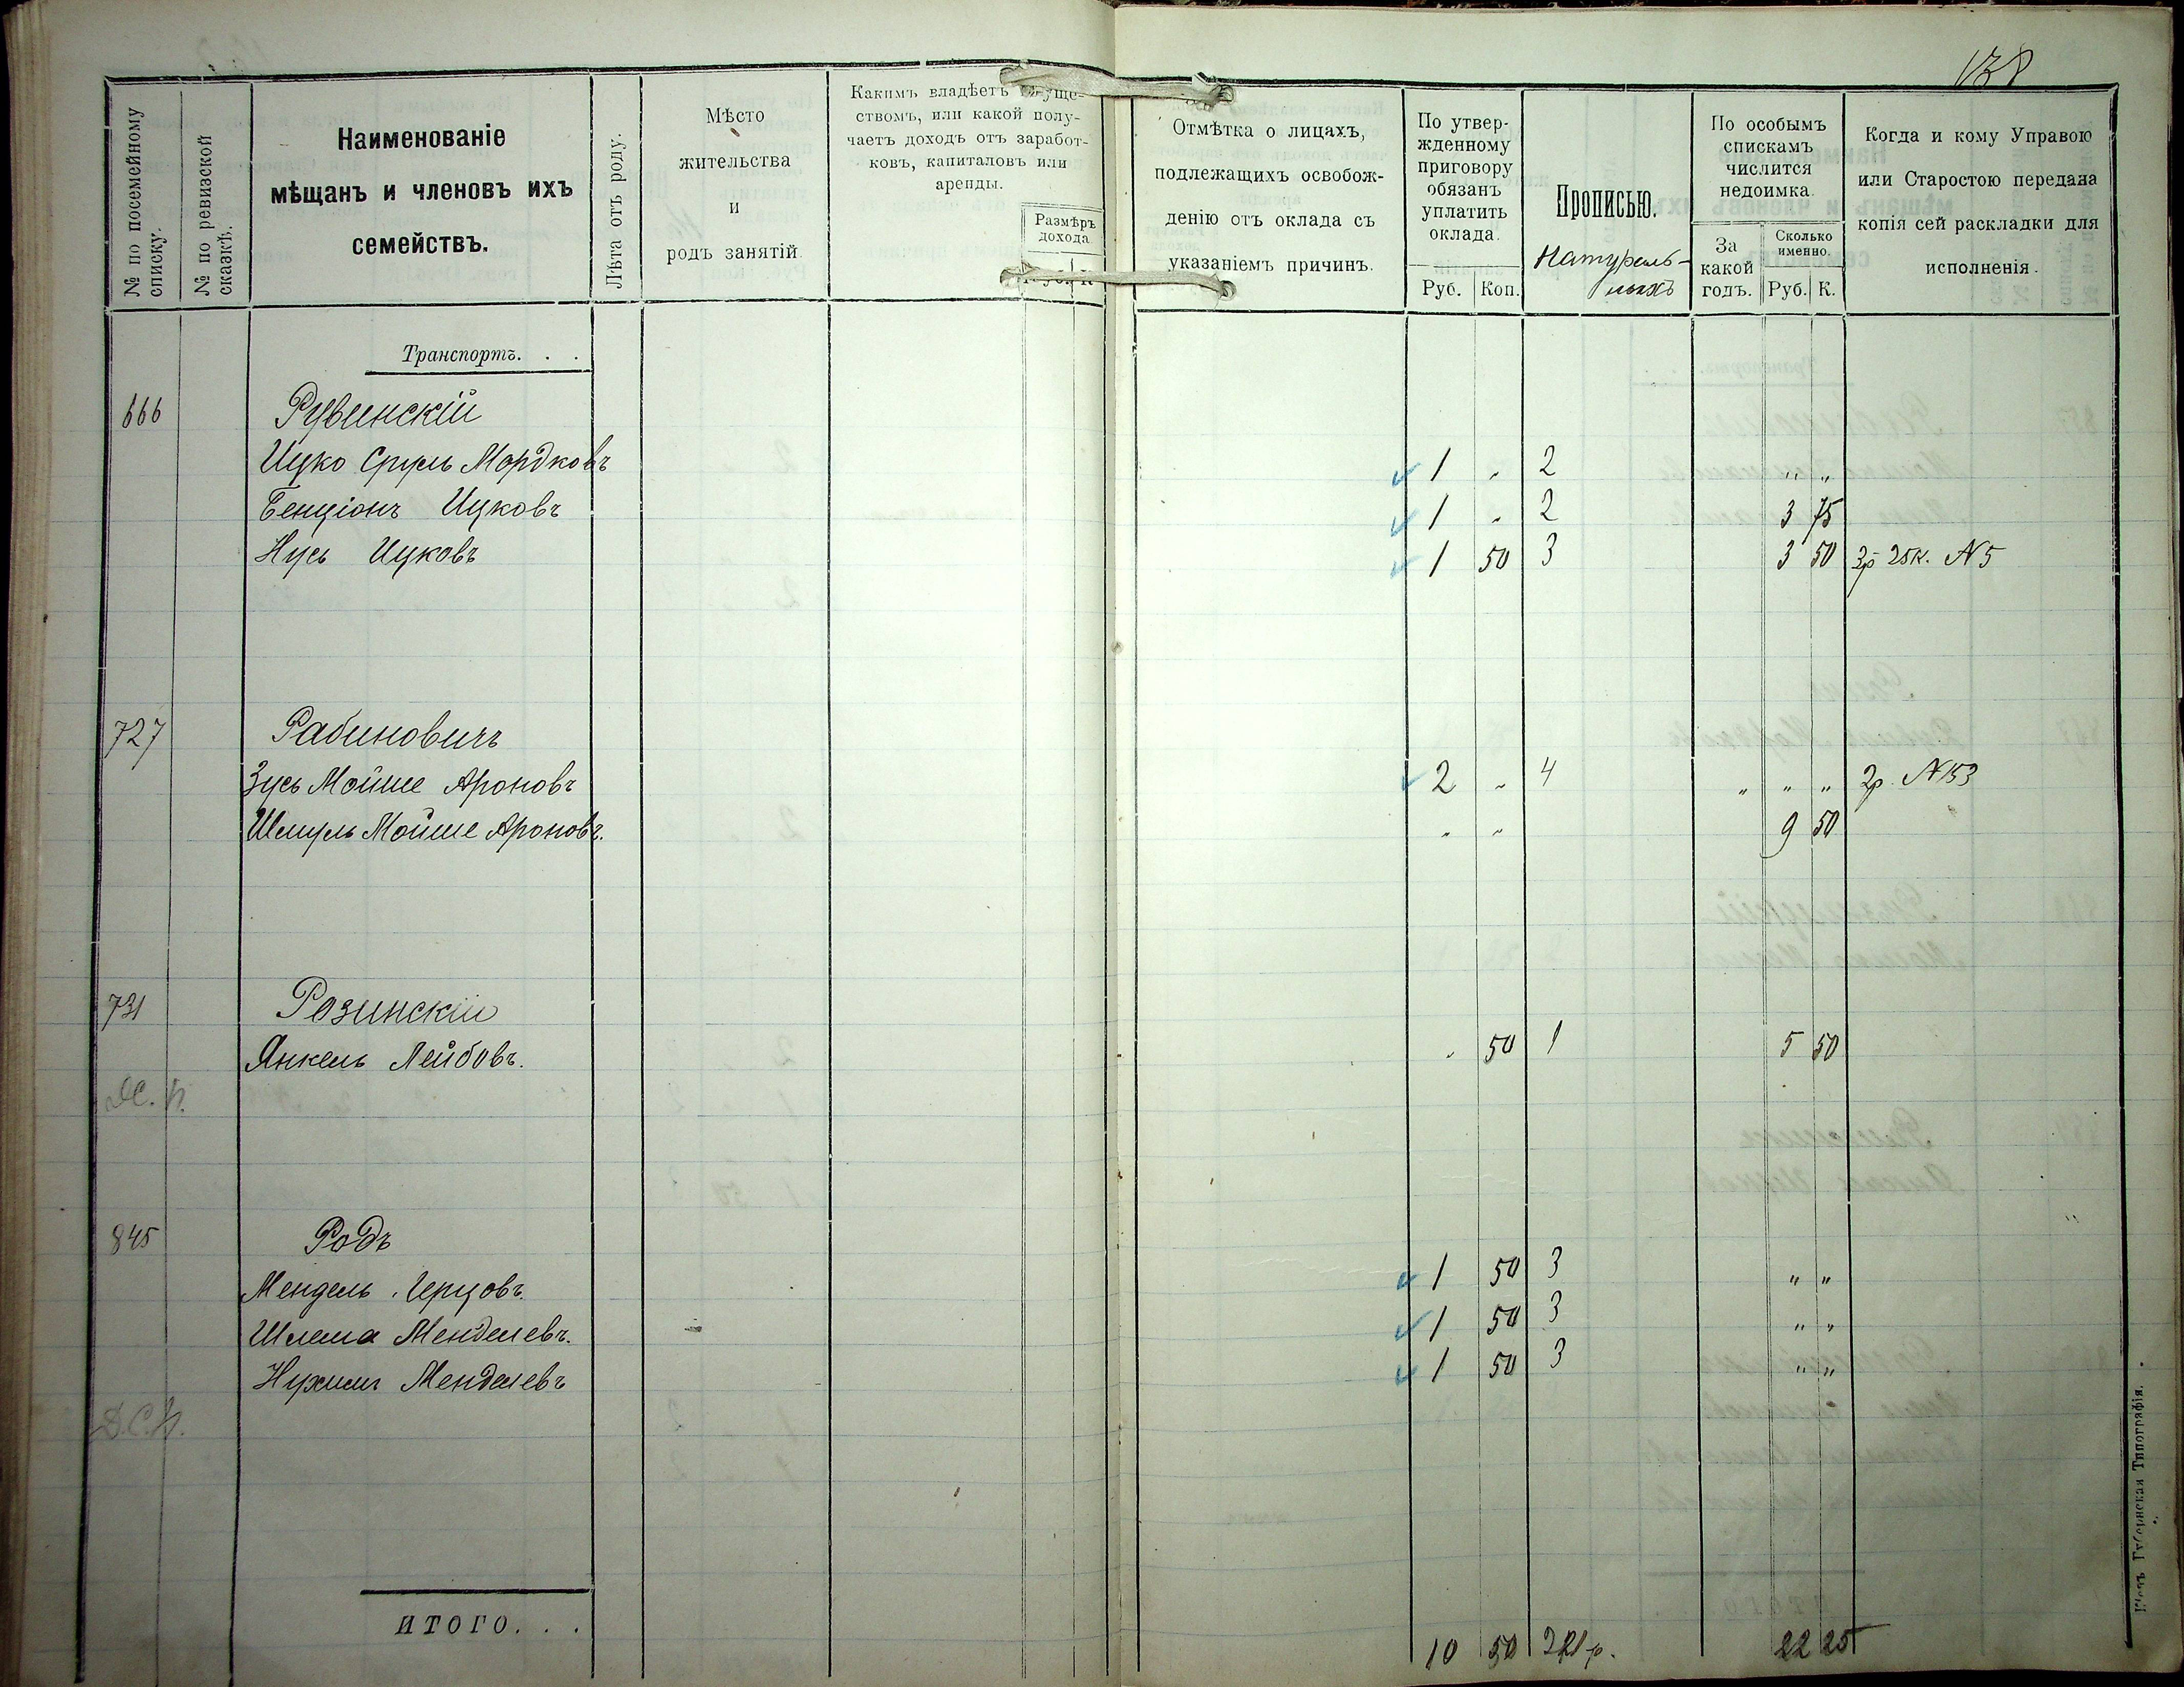 138
№ по посемейному списку.
№ по ревизской сказкѣ.
Наименованіе
мѣщанъ и членовъ ихъ
семействъ.
Лѣта отъ роду.
Мѣсто
жительства
и
родъ занятій.
Какимъ владѣетъ
ствомъ, или какой полу-
чаетъ доходъ отъ заработ-
ковъ, капиталовъ или
аренды.
Размѣръ
дохода
Отмѣтка о лицахъ,
подлежащихъ освобож-
денію отъ оклада съ
указаніемъ причинъ.
По утвер-
жденному
приговору
обязанъ
уплатить
оклада.
Руб. Коп.
Прописью.
Натураль-
ныхъ
По особымъ
спискамъ
числится
недоимка.
За
какой
годъ.
Сколько
именно.
Руб. К.
Когда и кому Управою
или Старостою передана
копія сей раскладки для
исполненія.
Транспортъ. . .
666 Рувинскій
Ицко Сруль Мордковъ 1 " 2 " "
Бенціонъ Ицковъ 1 " 2 3 75
Нусь Ицковъ 1 50 3 3 50 3р 25к. N 5
727 Рабиновичъ
Зусь Мойше Ароновъ 2 " 4 " " " 2р. N 153
Шмуль Мойше Ароновъ. " " 9 50
731 Розинскій
Янкель Лейбовъ. " 50 1 5 50
845 Родъ
Мендель Герцовъ. 1 50 3 " "
Шлема Менделевъ. 1 50 3 " "
Нухимъ Менделевъ 1 50 3 " "
Д.С.П.
ИТОГО. . . 10 50 21р. 22 25
Губернская Типографія.